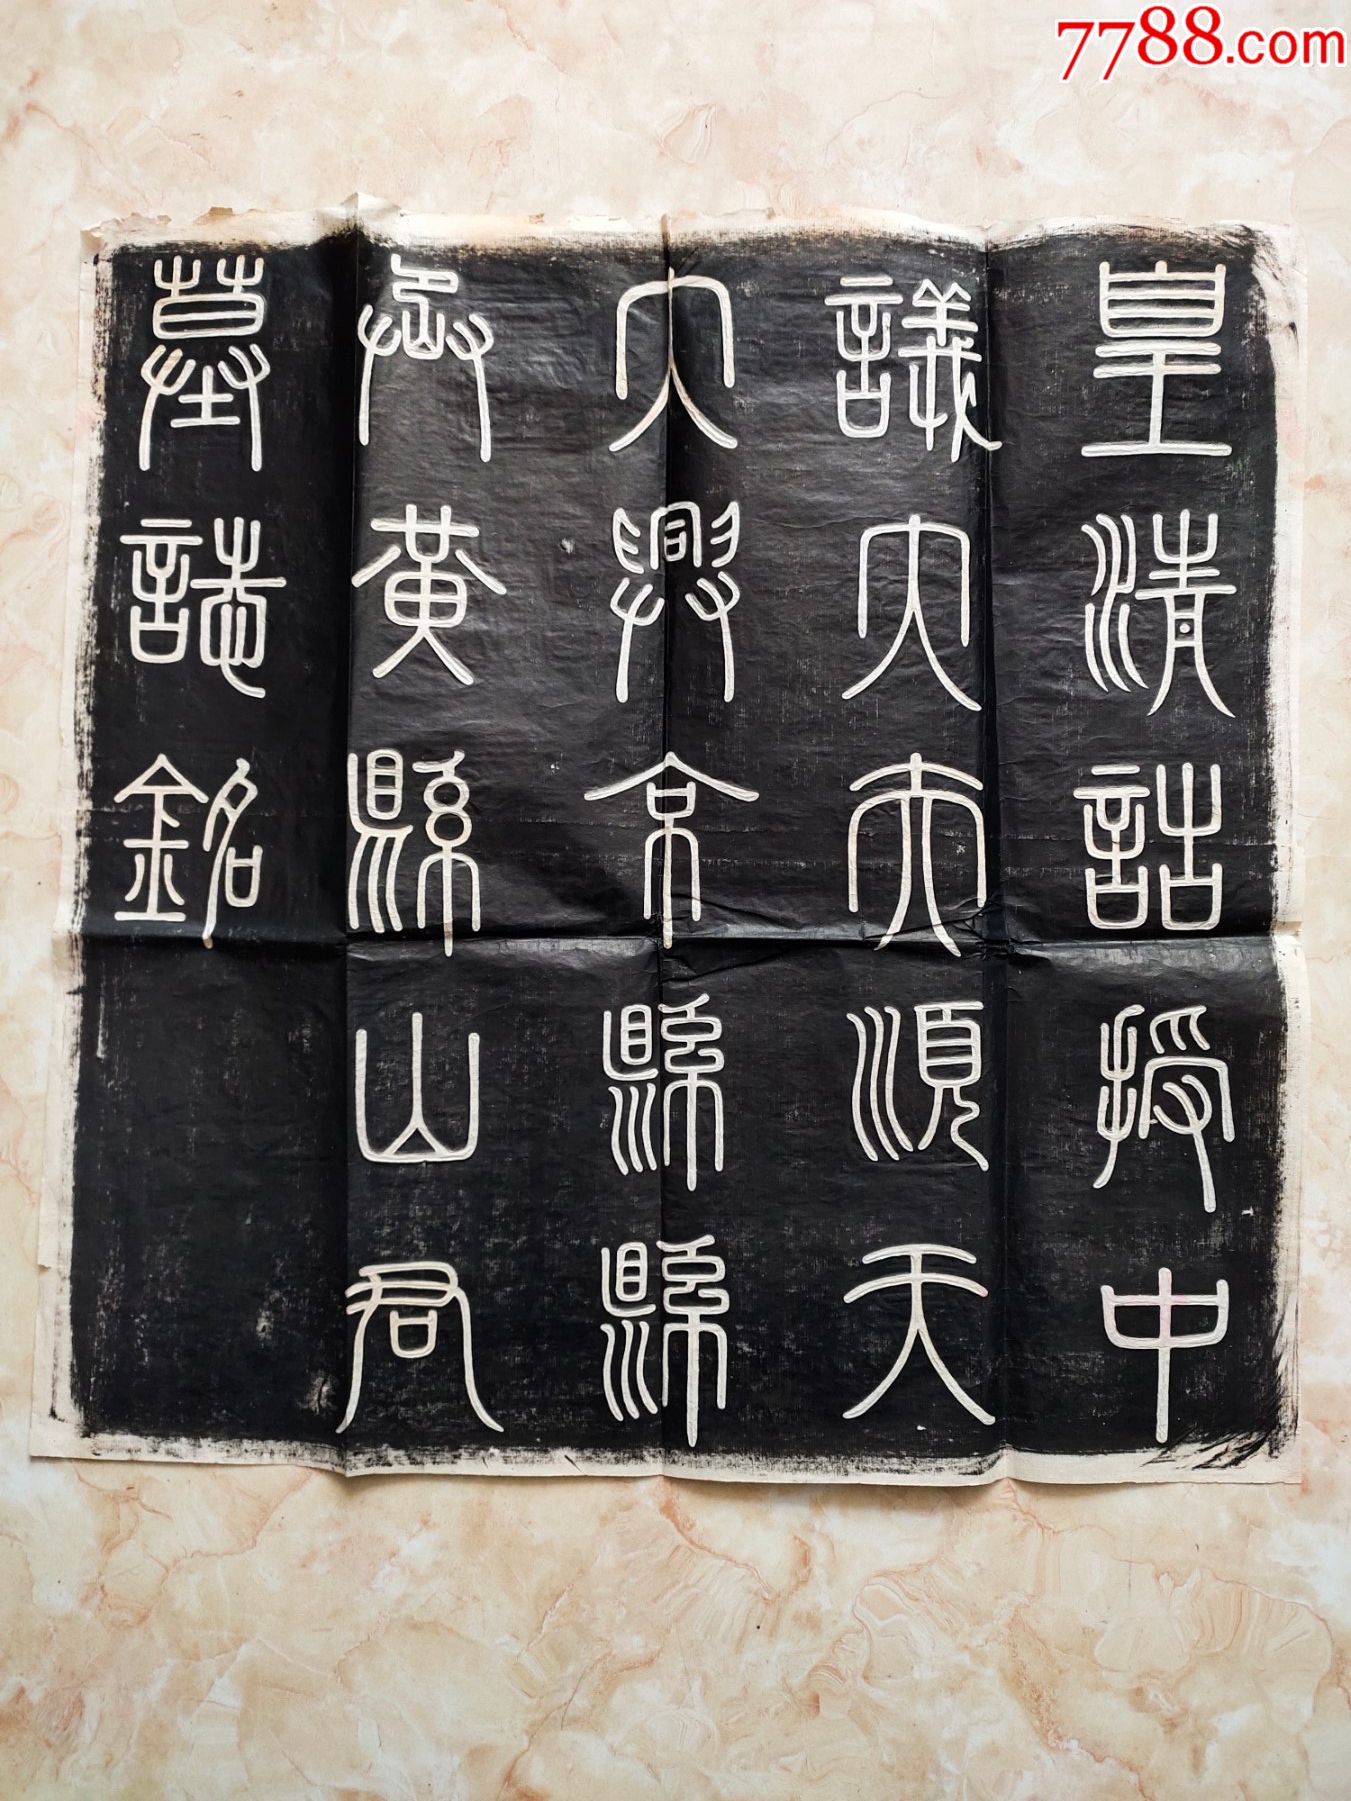 7788.com
皇清誥授中
議大夫順天
大興京縣縣
丞黃縣山君
墓誌銘